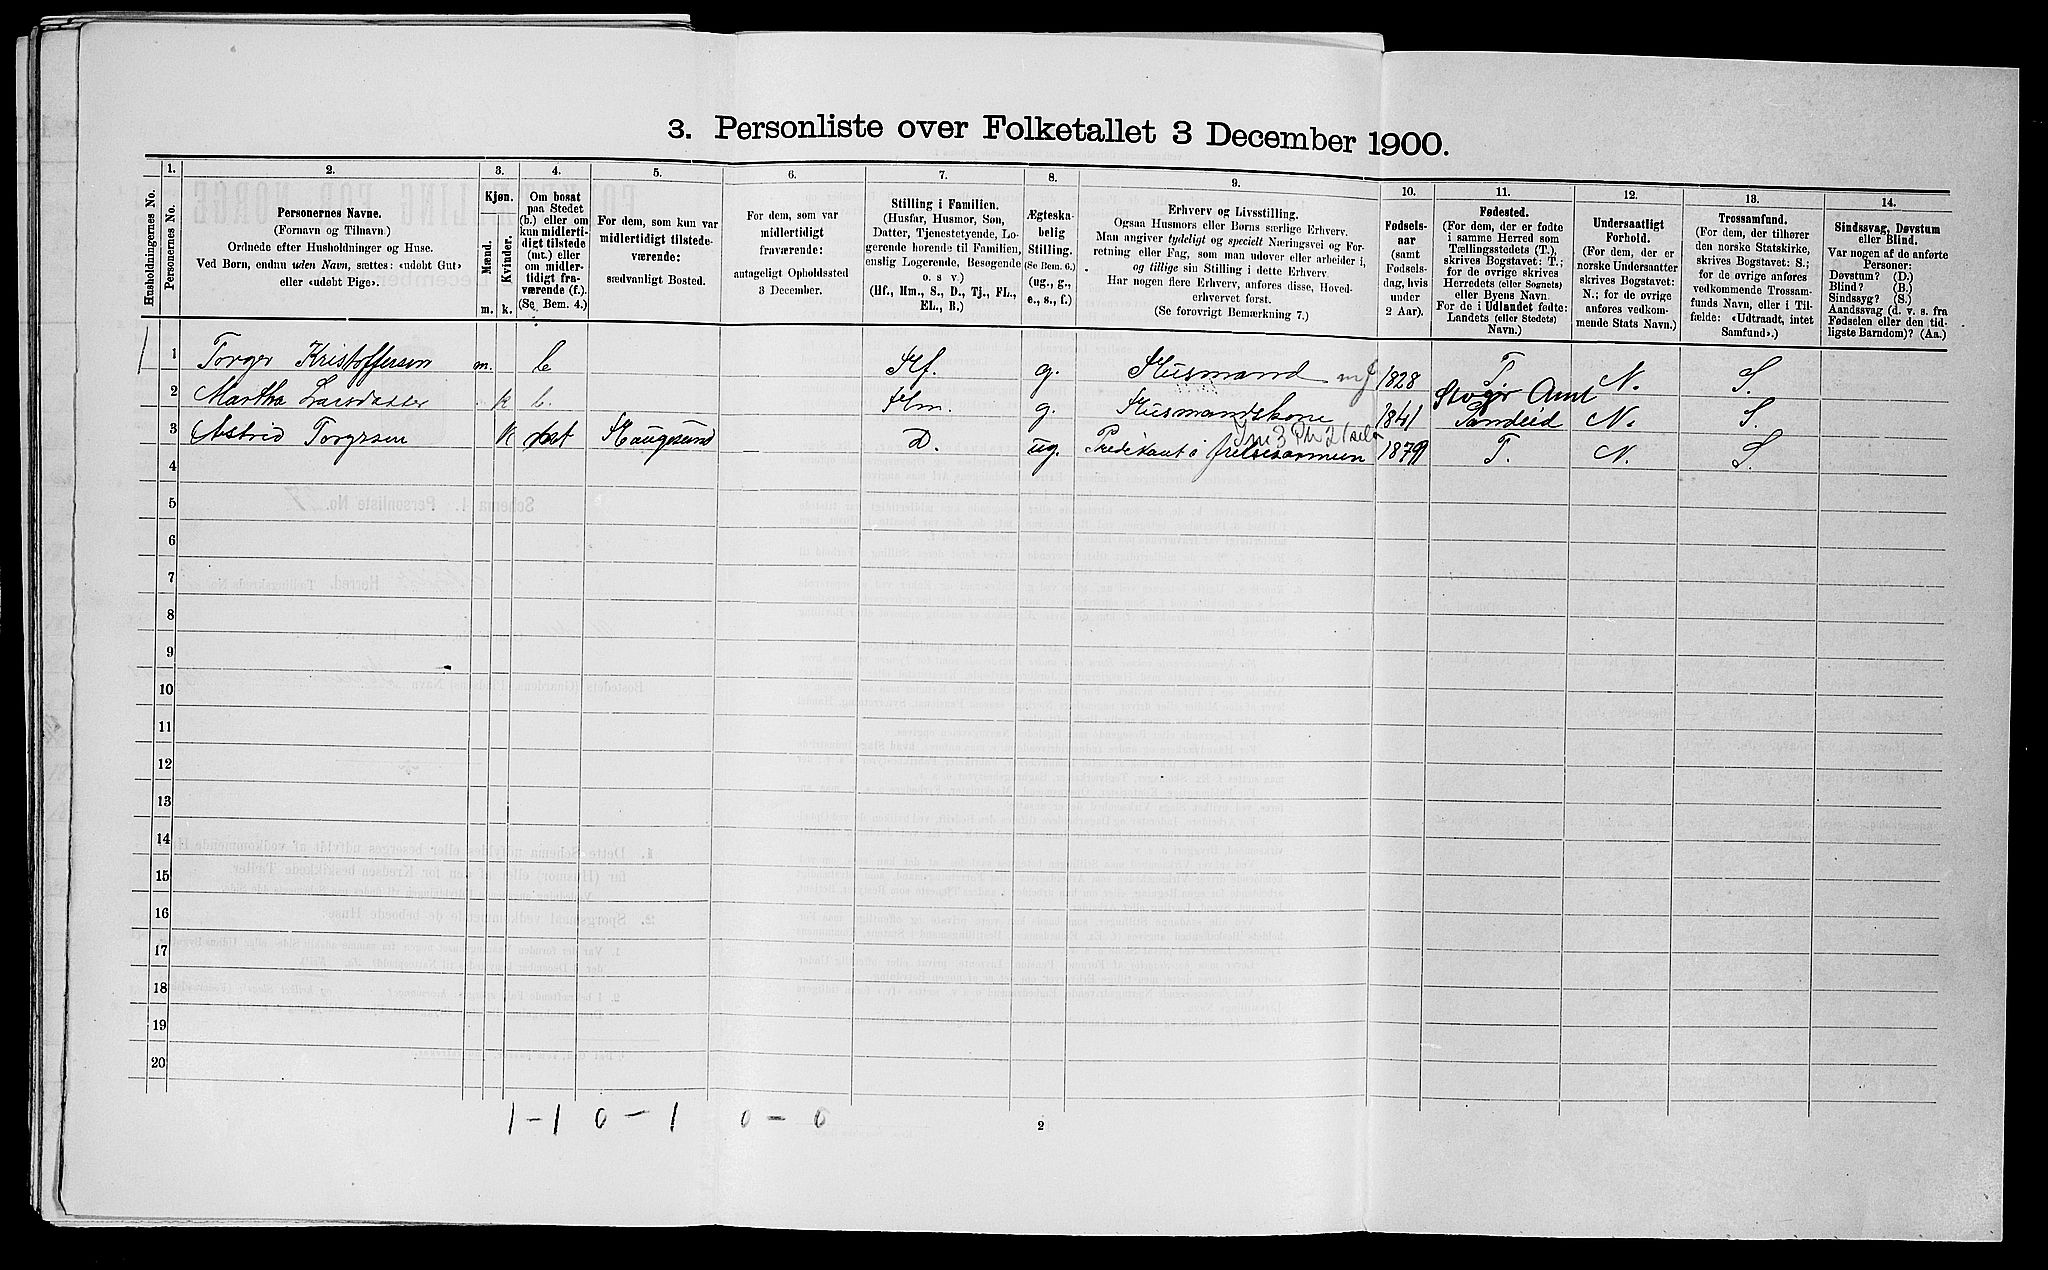 3. Personliste over Folketallet 3 December 1900.
Husholdningernes No.
1.
Personernes No.
2.
Personernes Navne.
(Fornavn og Tilnavn.)
Ordnede efter Husholdninger og Huse.
Ved Børn, endnu uden Navn, sættes: «udøbt Gut»
eller «udøbt Pige».
3.
Kjøn.
Mænd.
Kvinder.
m. k.
4.
Om bosat
paa Stedet
(b.) eller om
kun midlerti-
digt tilstede
(mt.) eller
om midler-
tidigt fra-
værende (f.).
(Se Bem. 4.)
5.
For dem, som kun var
midlertidigt tilstede-
værende:
sædvanligt Bosted.
6.
For dem, som var
midlertidigt
fraværende:
antageligt Opholdssted
3 December.
7.
Stilling i Familien.
(Husfar, Husmor, Søn,
Datter, Tjenestetyende, Lo-
gerende hørende til Familien,
enslig Logerende, Besøgende
o. s v.)
(Hf., Hm., S., D., Tj., FL.,
EL., B.)
8.
Ægteska-
belig
Stilling.
(Se Bem. 6.)
(ug., g.,
e., s., f.)
9.
Erhverv og Livsstilling.
Ogsaa Husmors eller Børns særlige Erhverv.
Man angiver tydeligt og specielt Næringsvei og For-
retning eller Fag, som man udover eller arbeider i,
og tillige sin Stilling i dette Erhverv.
Har nogen flere Erhverv, anføres disse, Hoved-
erhvervet først.
(Se forøvrigt Bemærkning 7.)
10.
Fødsels-
aar
(samt
Fødsels-
dag, hvis
under
2 Aar).
11.
Fødested.
(For dem, der er fødte
i samme Herred som
Tællingsstedets (T.),
skrives Bogstavet: T.;
for de øvrige skrives
Herredets (eller Sognets)
eller Byens Navn.
For de i Udlandet fødte:
Landets (eller Stedets)
Navn.)
12.
Undersaatligt
Forhold.
(For dem, der er
norske Undersaatter
skrives Bogstavet:
N.; for de øvrige
anføres vedkom-
mende Stats Navn.)
13.
Trossamfund.
(For dem, der tilhører
den norske Statskirke,
skrives Bogstavet: S.;
for de øvrige anføres
vedkommende Trossam-
funds Navn, eller i Til-
fælde: «Udtraadt, intet
Samfund».)
14.
Sindssvag, Døvstum
eller Blind.
Var nogen af de anførte
Personer:
Døvstum? (D.)
Blind? (B.)
Sindssyg? (S.)
Aandssvag (d. v. s. fra
Fødselen eller den tid-
ligste Barndom)? (Aa.)
1 Torger Kristoffersen m. b Hf. g. Husmand 1828 T N. S.
Amt
2 Martha Larsdatter k b. Hm. g. Husmandskone 1841 Sandeid N. S.
3 Astrid Torgersen k mt Haugesund D. ug. Predikant i frelsesarmeen 1879 T. N. S
4
5
6
7
8
9
10
11
12
13
14
15
16
17
18
19
20
1-1 0-1 0-0
2